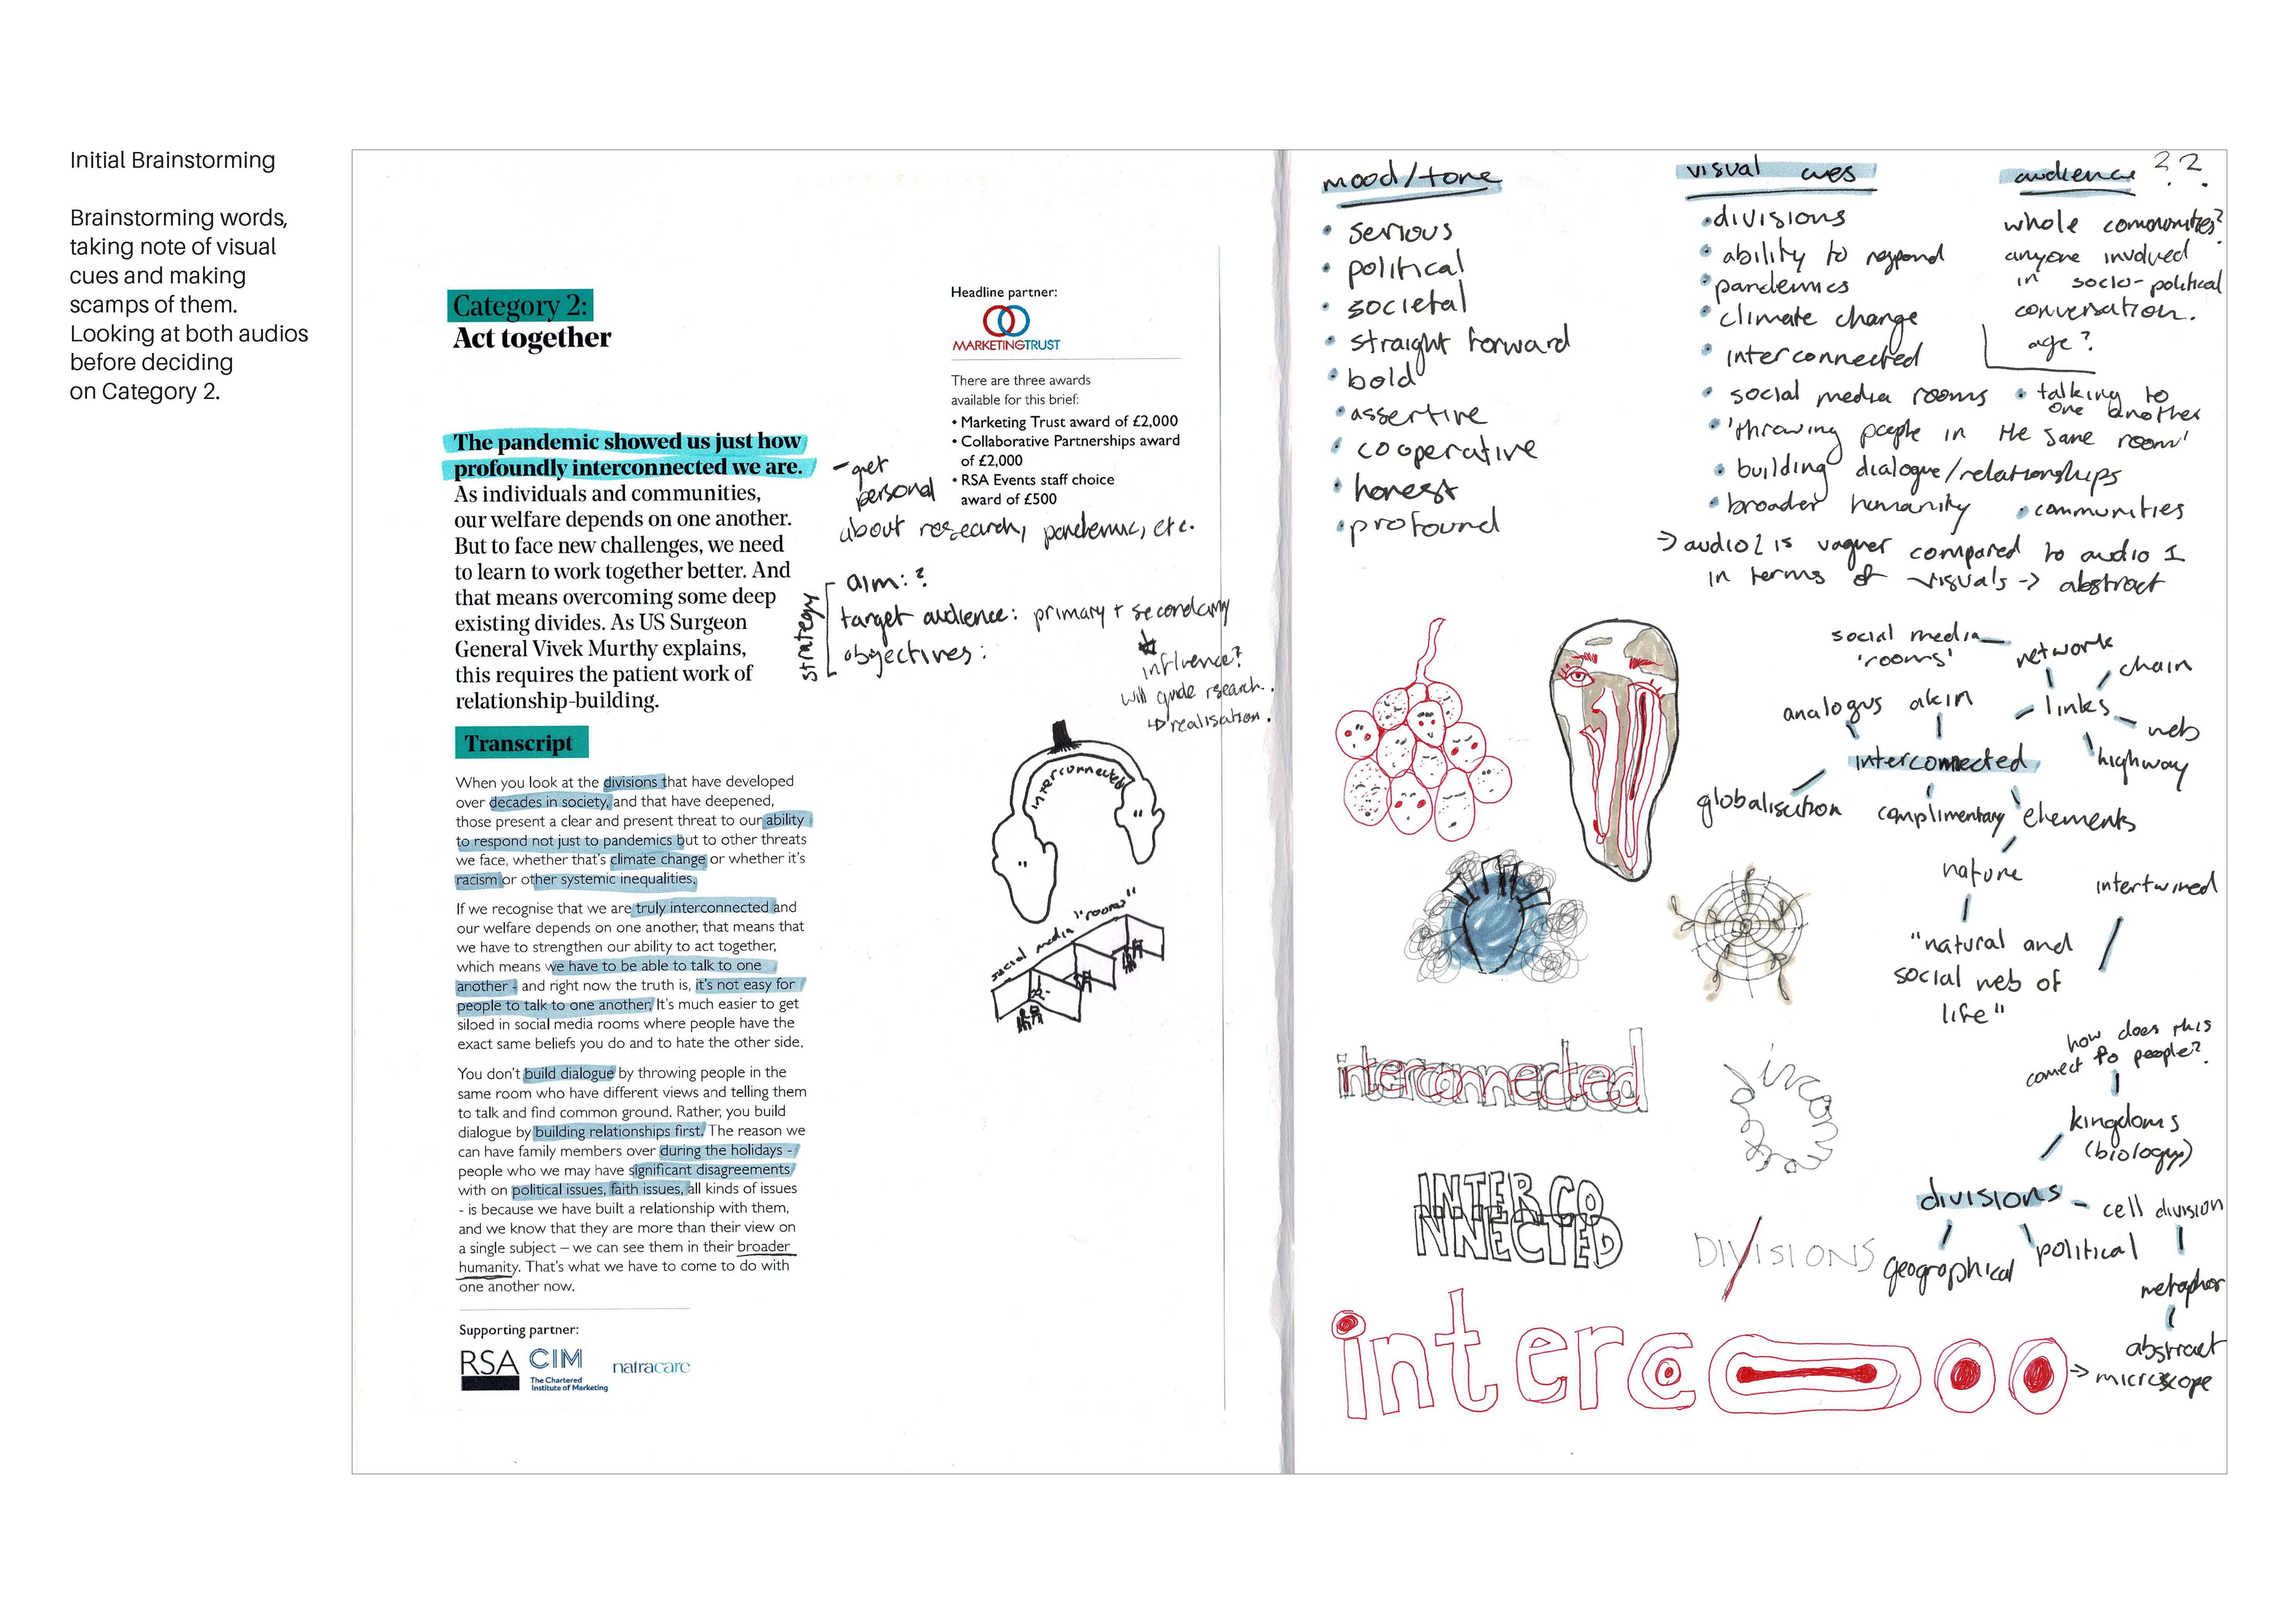 Initial Brainstorming
Brainstorming words,
taking note of visual
cues and making
scamps of them.
Looking at both audios
before deciding
on Category 2.
Category 2:
Act together
The pandemic showed us just how
profoundly interconnected we are.
As individuals and communities,
our welfare depends on one another.
But to face new challenges, we need
to learn to work together better. And
that means overcoming some deep
existing divides. As US Surgeon
General Vivek Murthy explains,
this requires the patient work of
relationship-building.
Headline partner:
MARKETINGTRUST
There are three awards
available for this brief:
• Marketing Trust award of £2,000
• Collaborative Partnerships award
of £2,000
• RSA Events staff choice
award of £500
- get
personal
about research, pandemic, etc.
strategy
aim: ?
target audience: primary + secondary
objectives:
influence?
will guide research.
↳ realisation.
Transcript
When you look at the divisions that have developed
over decades in society, and that have deepened,
those present a clear and present threat to our ability
to respond not just to pandemics but to other threats
we face, whether that's climate change or whether it's
racism or other systemic inequalities.
If we recognise that we are truly interconnected and
our welfare depends on one another, that means that
we have to strengthen our ability to act together,
which means we have to be able to talk to one
another - and right now the truth is, it's not easy for
people to talk to one another. It's much easier to get
siloed in social media rooms where people have the
exact same beliefs you do and to hate the other side.
You don't build dialogue by throwing people in the
same room who have different views and telling them
to talk and find common ground. Rather, you build
dialogue by building relationships first. The reason we
can have family members over during the holidays -
people who we may have significant disagreements
with on political issues, faith issues, all kinds of issues
- is because we have built a relationship with them,
and we know that they are more than their view on
a single subject – we can see them in their broader
humanity. That's what we have to come to do with
one another now.
interconnected
social media "rooms"
Supporting partner:
RSA
CIM
The Chartered
Institute of Marketing
natracare
mood/tone
• serious
• political
• societal
• straight forward
• bold
• assertive
• cooperative
• honest
• profound
visual cues
• divisions
• ability to respond
• pandemics
• climate change
• interconnected
• social media rooms
• 'throwing people in the same room'
• building dialogue/relationships
• broader humanity
• talking to
one another
• communities
audience ??
whole communities?
anyone involved
in socio-political
conversation.
age?
→ audio 2 is vaguer compared to audio 1
in terms of visuals → abstract
social media
'rooms'
network
chain
links
web
highway
analogus
akin
interconnected
globalisation
complimentary
elements
nature
intertwined
"natural and
social web of
life"
how does this
conect to people?
kingdoms
(biology)
divisions - cell division
geographical
political
metaphor
abstract
→ microscope
interconnected
INTERCO
NNECTED
DIVISIONS
interc